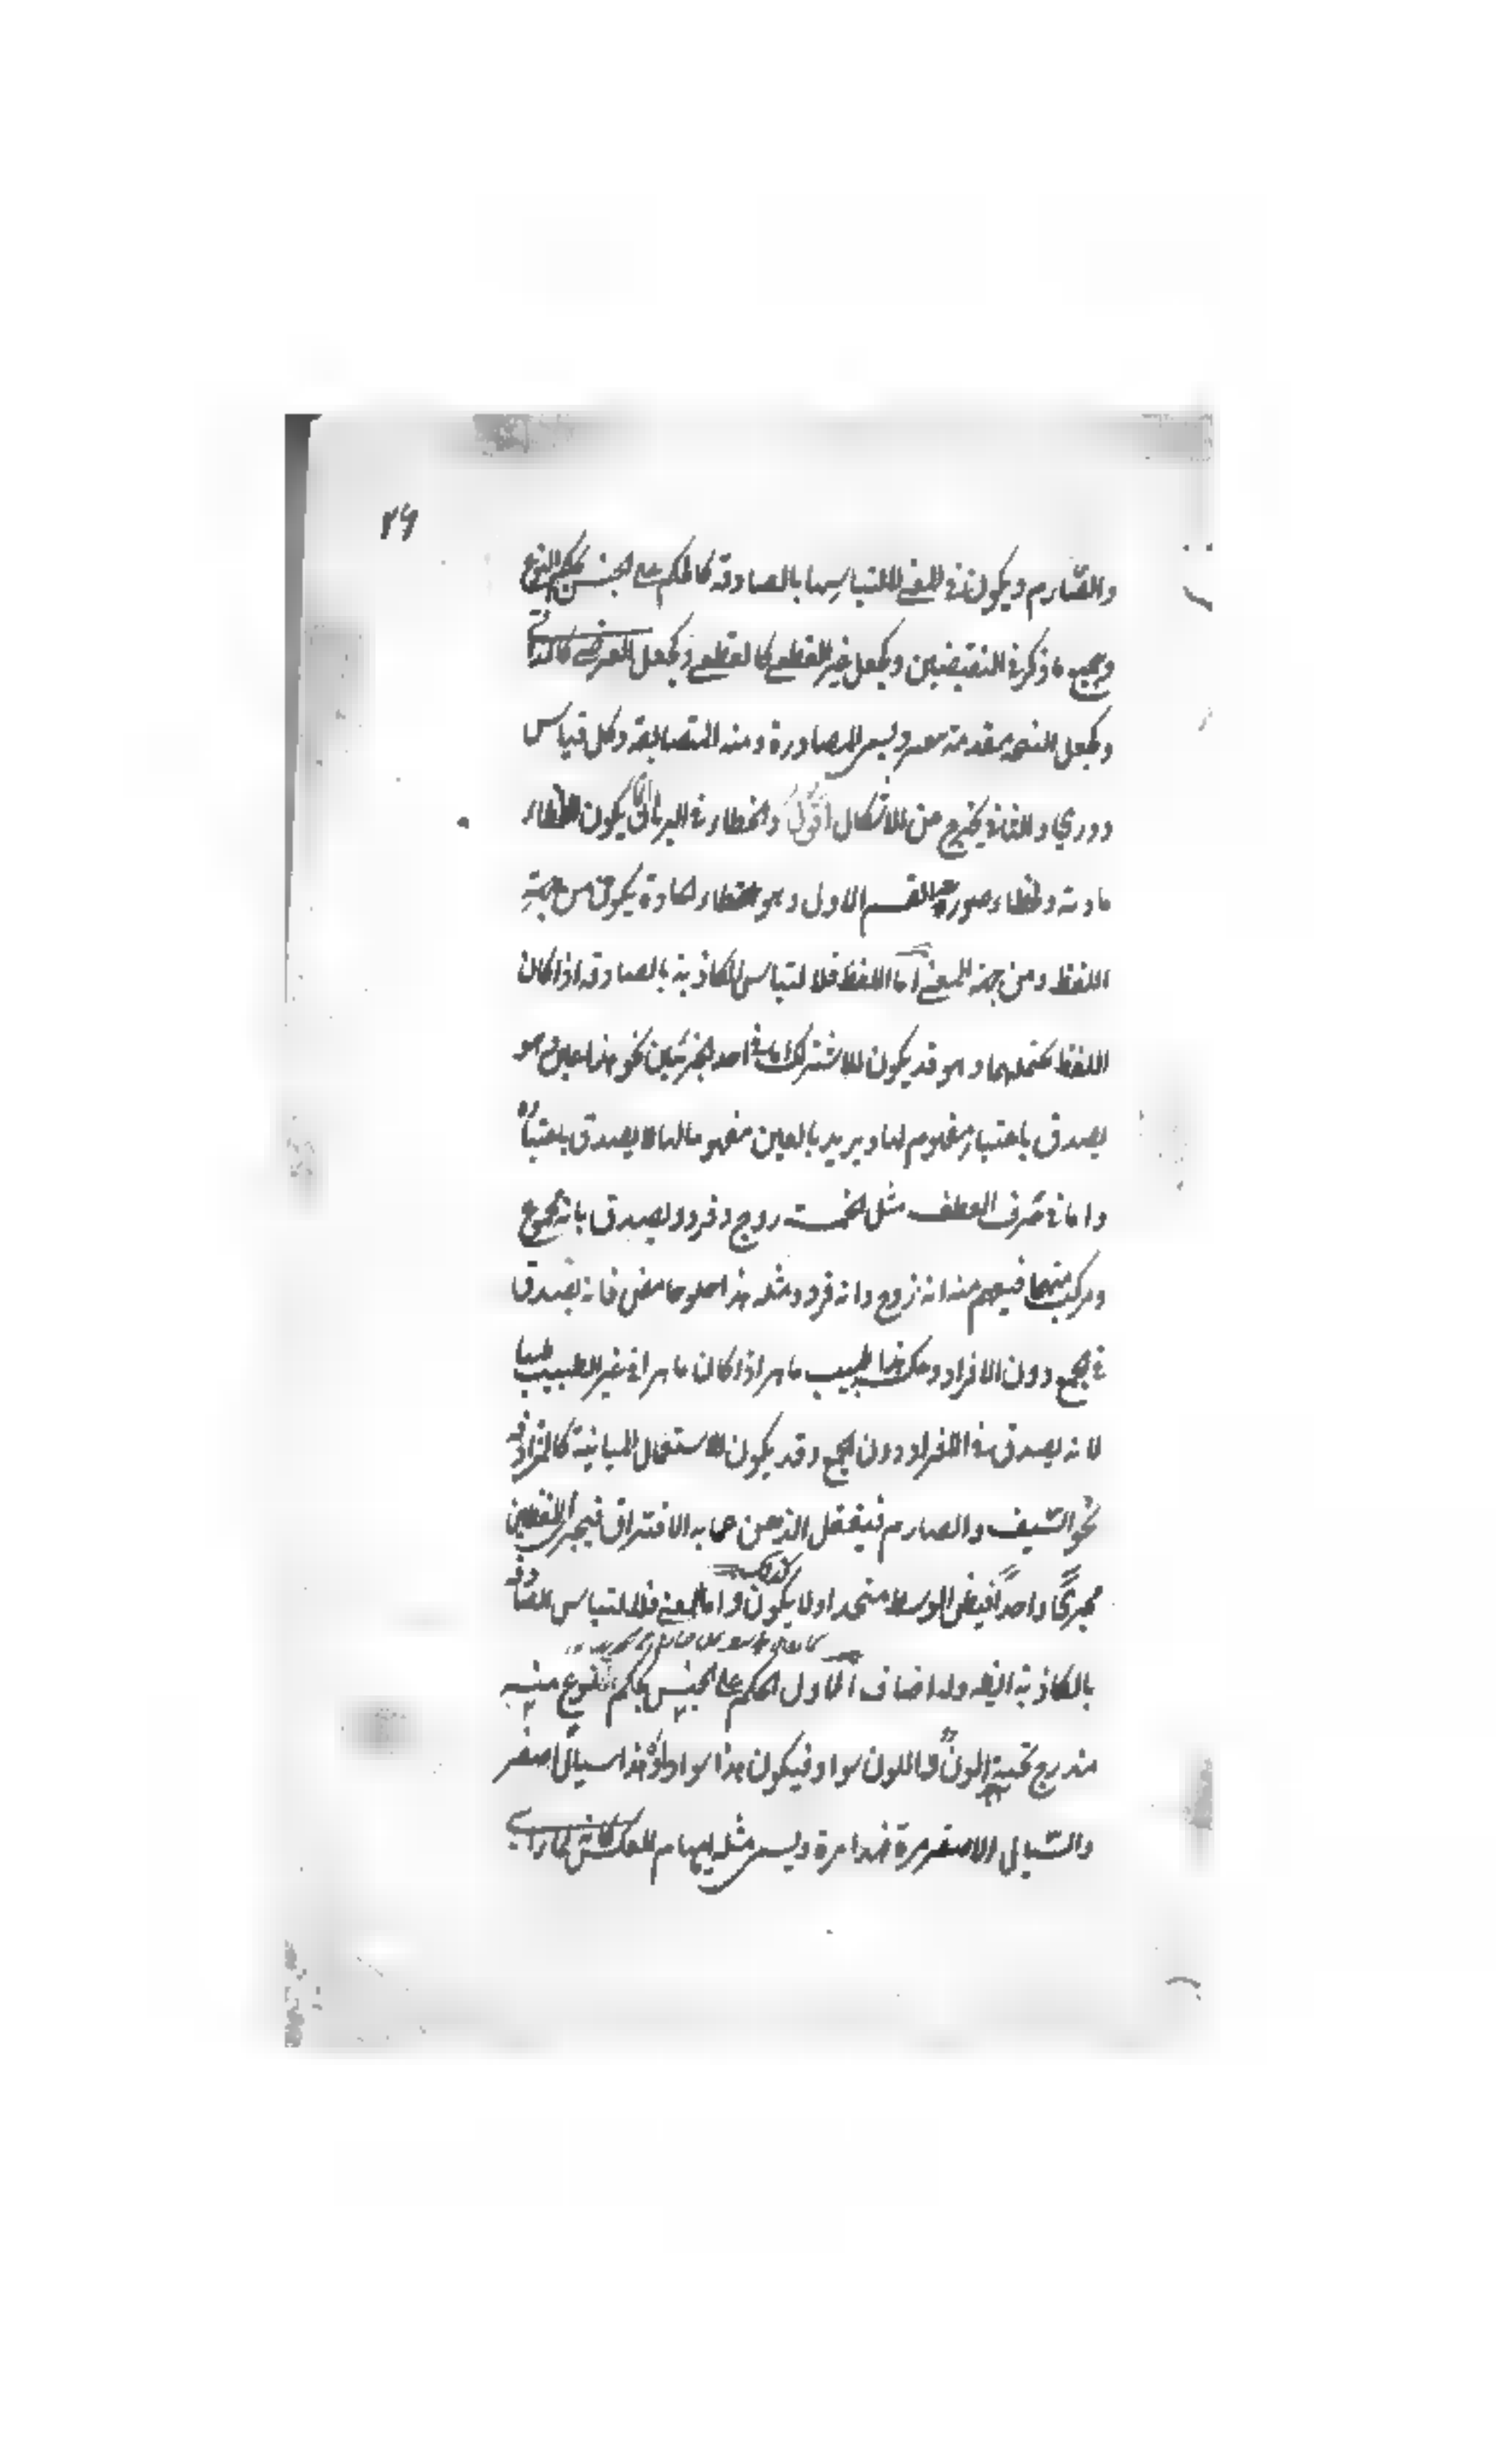 ٢٩
والصّارم ويكون في المعنى لالتباسها بالصادقة كالحكم على الجنس بحكم النوع
وجميع ما ذكر في النقيضين وكجعل غير القطعي كالقطعي وكجعل العرضي كالذاتي
وكجعل النتيجة مقدمة وليس المصادرة ومنه المتضايفة وكل قياس
دوري والثاني يخرج عن الاشكال اقول والخطاء في البرهان يكون لخطاء
مادته ولخطاء صورته القسم الاول وهو خطاء المادة يكون من جهة
اللفظ ومن جهة المعنى اما اللفظ فلالتباس الكاذبة بالصادقة اذا كان
اللفظ يحتملهما وهو قد يكون للاشتراك اما في احد الجزئين نحو هذا عين وهو
يصدق باعتبار مفهوم لها ويريد بالعين مفهوما لها لا يصدق باعتباره
واما في حرف العطف مثل الخمسة زوج وفرد ويصدق بانه مجموع
ومركب منهما فيفهم منه انه زوج وانه فرد ومثله هذا حلو حامض فانه يصدق
في الجمع دون الافراد وعكسه هذا طبيب ماهر اذا كان ماهرا في غير الطبيب طبيبا
لانه يصدق في الافراد دون الجمع وقد يكون لاستعمال المباينة كالمترادفة
نحو السّيف والصارم فيغفل الذهن عما به الافتراق فيجري اللفظين
مجرىً واحداً فيظن الوسط متحدا ولا يكون كذلك واما المعنى فلالتباس الصادقة
بالكاذبة ايضا وله اصناف الاول الحكم على الجنس بحكم النوع منه
مندرج تحته اللون واللون سواد فيكون هذا سوادا وهذا سيال اصفر
والسّيال الاصفر مرة فهذا مرة وليس مثله ايهام العكس كمن راى